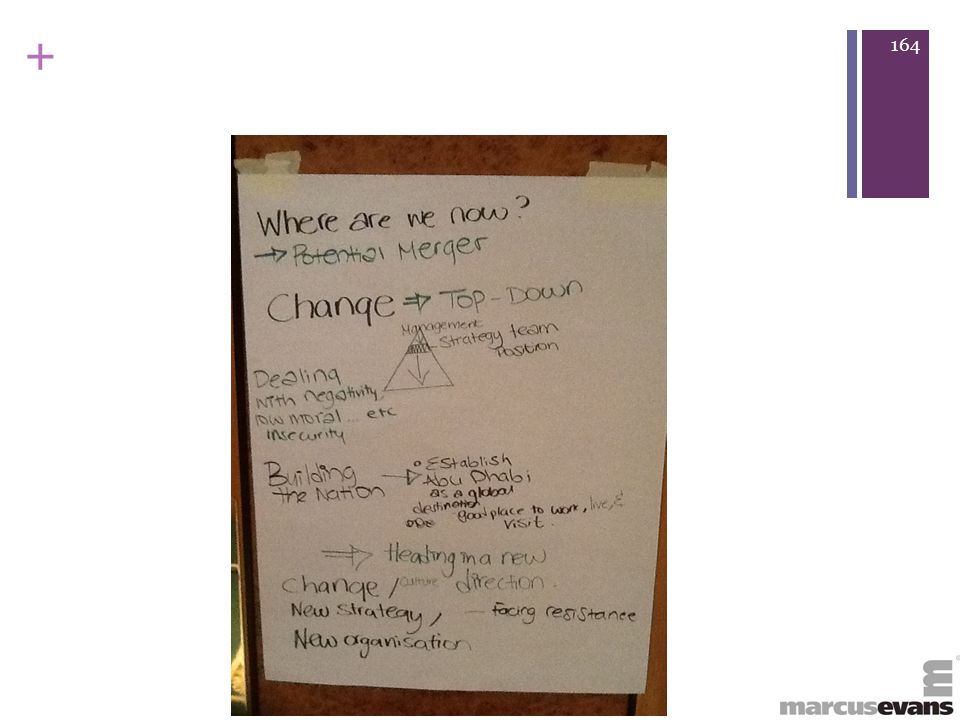 +
164
Where are we now?
→ Potential Merger
Change ⇒ Top-Down
Management
Strategy team
Position
Dealing
with negativity,
low moral... etc
insecurity
Building
the Nation
→
• Establish
Abu Dhabi
as a global
destination
good place to work, live, &
visit.
⇒ Heading in a new
direction.
Change / culture
New strategy,
— facing resistance
New organisation
marcusevans